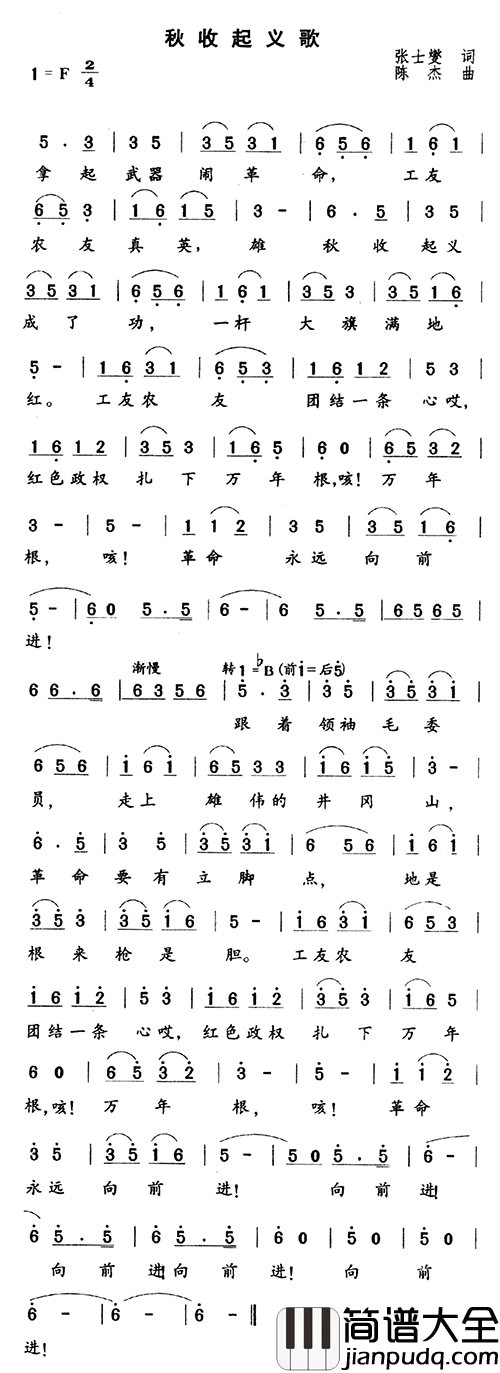 秋收起义歌
张士燮 词
1=F 2/4
陈杰 曲
5 . 3 | 3 5 | 3 5 3 1 | 6 5 6 | 1 6 1 |
拿起 武器 闹革命, 工友
6 5 3 | 1 6 1 5 | 3 - | 6 . 5 | 3 5 |
农友 真英, 雄 秋收 起义
3 5 3 1 | 6 5 6 | 1 6 1 | 3 5 3 | 3 5 1 6 |
成了功, 一杆 大旗 满地
5 - | 1 6 3 1 | 6 5 3 | 1 6 1 2 | 5 3 |
红。 工友农友 团结一条 心哎,
1 6 1 2 | 3 5 3 | 1 6 5 | 6 0 | 6 5 3 2 |
红色政权 扎下 万年 根,咳! 万年
3 - | 5 - | 1 1 2 | 3 5 | 3 5 1 6 |
根, 咳! 革命 永远 向前
5 - | 6 0 5 . 5 | 6 - | 6 5 . 5 | 6 5 6 5 |
进!
渐慢 转1=♭B(前1=后5)
6 6 . 6 | 6 3 5 6 | 5 . 3 | 3 5 | 3 5 3 1 |
跟着 领袖 毛委
6 5 6 | 1 6 1 | 6 5 3 3 | 1 6 1 5 | 3 - |
员, 走上 雄伟的 井冈 山,
6 . 5 | 3 5 | 3 5 3 1 | 6 5 6 | 1 6 1 |
革命 要有 立脚点, 地是
3 5 3 | 3 5 1 6 | 5 - | 1 6 3 1 | 6 5 3 |
根来 枪是 胆。 工友农友
1 6 1 2 | 5 3 | 1 6 1 2 | 3 5 3 | 1 6 5 |
团结一条 心哎, 红色政权 扎下 万年
6 0 | 6 5 3 2 | 3 - | 5 - | 1 1 2 |
根,咳! 万年 根, 咳! 革命
3 5 | 3 5 1 6 | 5 - | 5 0 5 . 5 | 6 - |
永远 向前 进! 向前 进!
6 5 . 5 | 6 5 . 5 | 6 0 | 5 0 | 5 0 |
向前 进 向前 进! 向 前
6 - | 6 - | 6 - ‖
进!
简谱大全
jianpudq.com